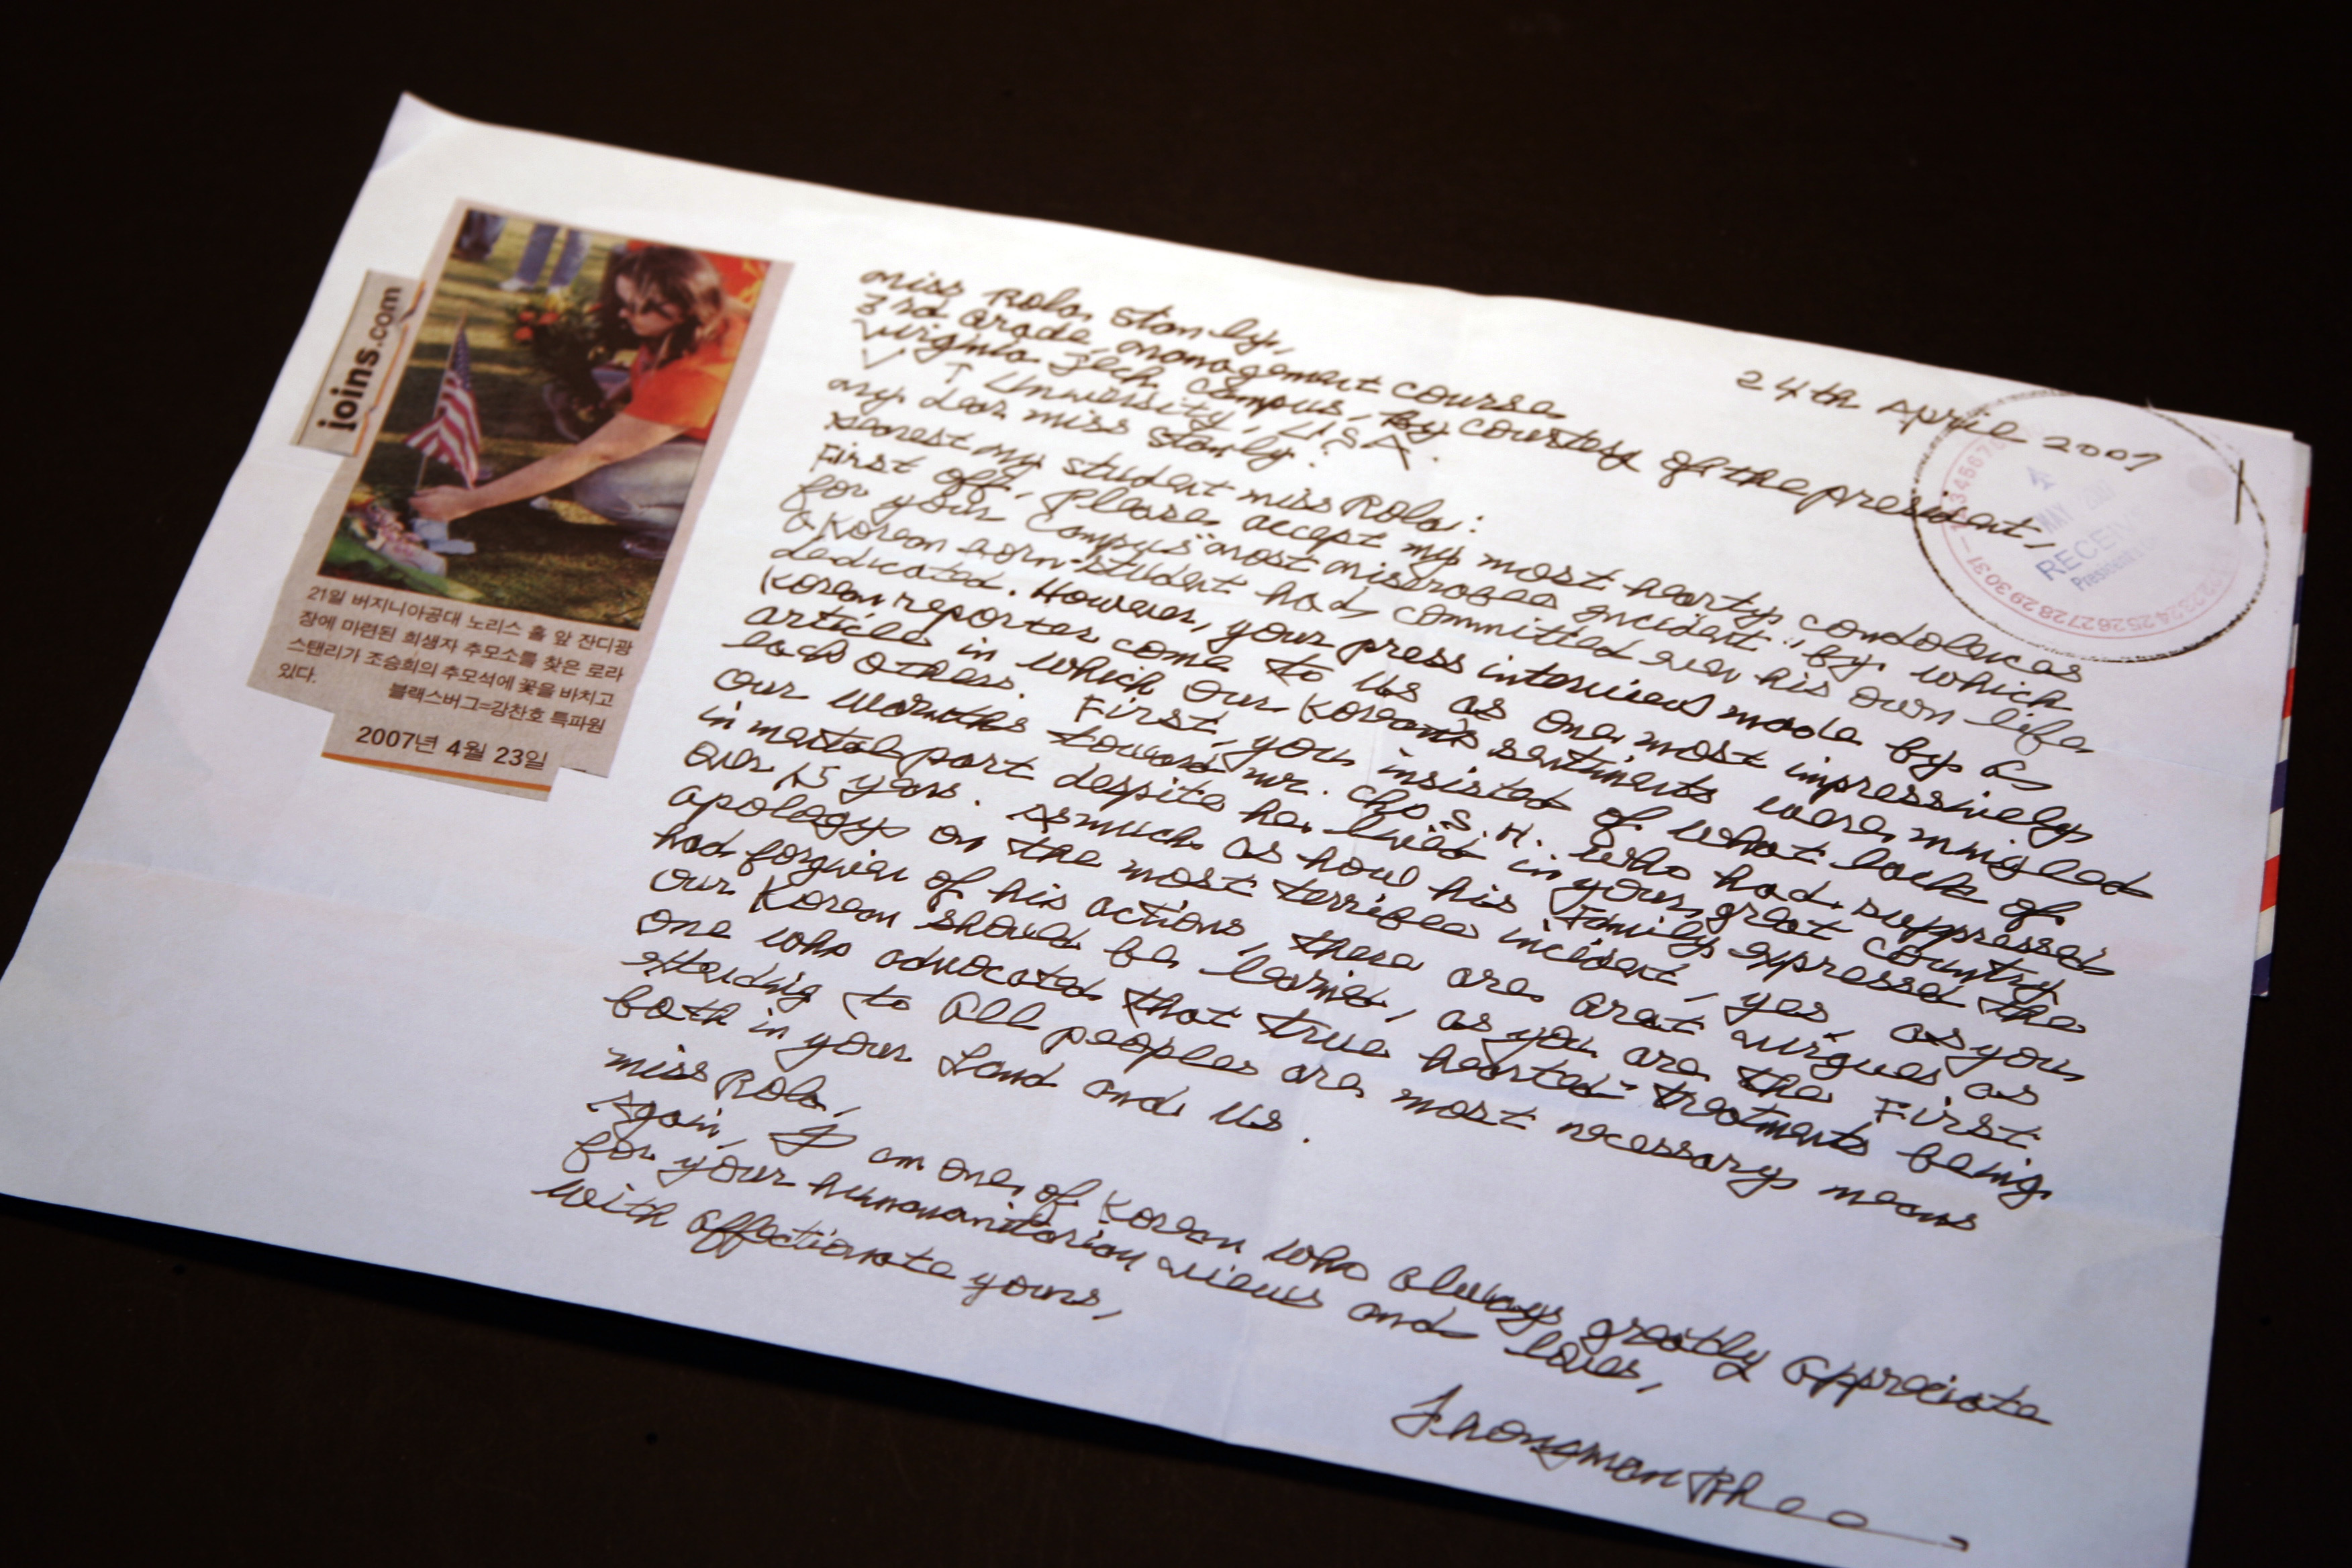 joins.com
21일 버지니아공대 노리스 홀 앞 잔디광
장에 마련된 희생자 추모소를 찾은 로라
스탠리가 조승희의 추모석에 꽃을 바치고
있다.
블랙스버그=강찬호 특파원
2007년 4월 23일
24th April 2007
MAY
RECEIV
President's
miss Rola Stanly,
3rd Grade, management course
Virginia Tech Campus, By courtesy of the president,
V T University, U.S.A.
my dear miss Stanly:
Dearest my student miss Rola:
First off, Please accept my most hearty condolences
for your Campus "most miserable incident", by which
a Korean born-student had committed even his own life
dedicated. However, your press interview made by a
Korean reporter come to us as one most impressively
article in which our Korean's sentiments were mingled
each others. First, you insisted of what lack of
our warmths toward mr. Cho S. H. who had suppressed
in mental part despite he lived in your great country
over 15 years. As much as how his Family expressed the
apology on the most terrible incident, yes, as you
had forgiven of his actions, there are great virgues as
our Korean should be learned, as you are the First
one who advocated that true hearted-treatments being
attending to all peoples are most necessary means
both in your Land and us.
miss Rola,
Again, I am one of Korean who always greatly appreciate
for your humanitarian views and loves,
with affectionate yours,
Rhee